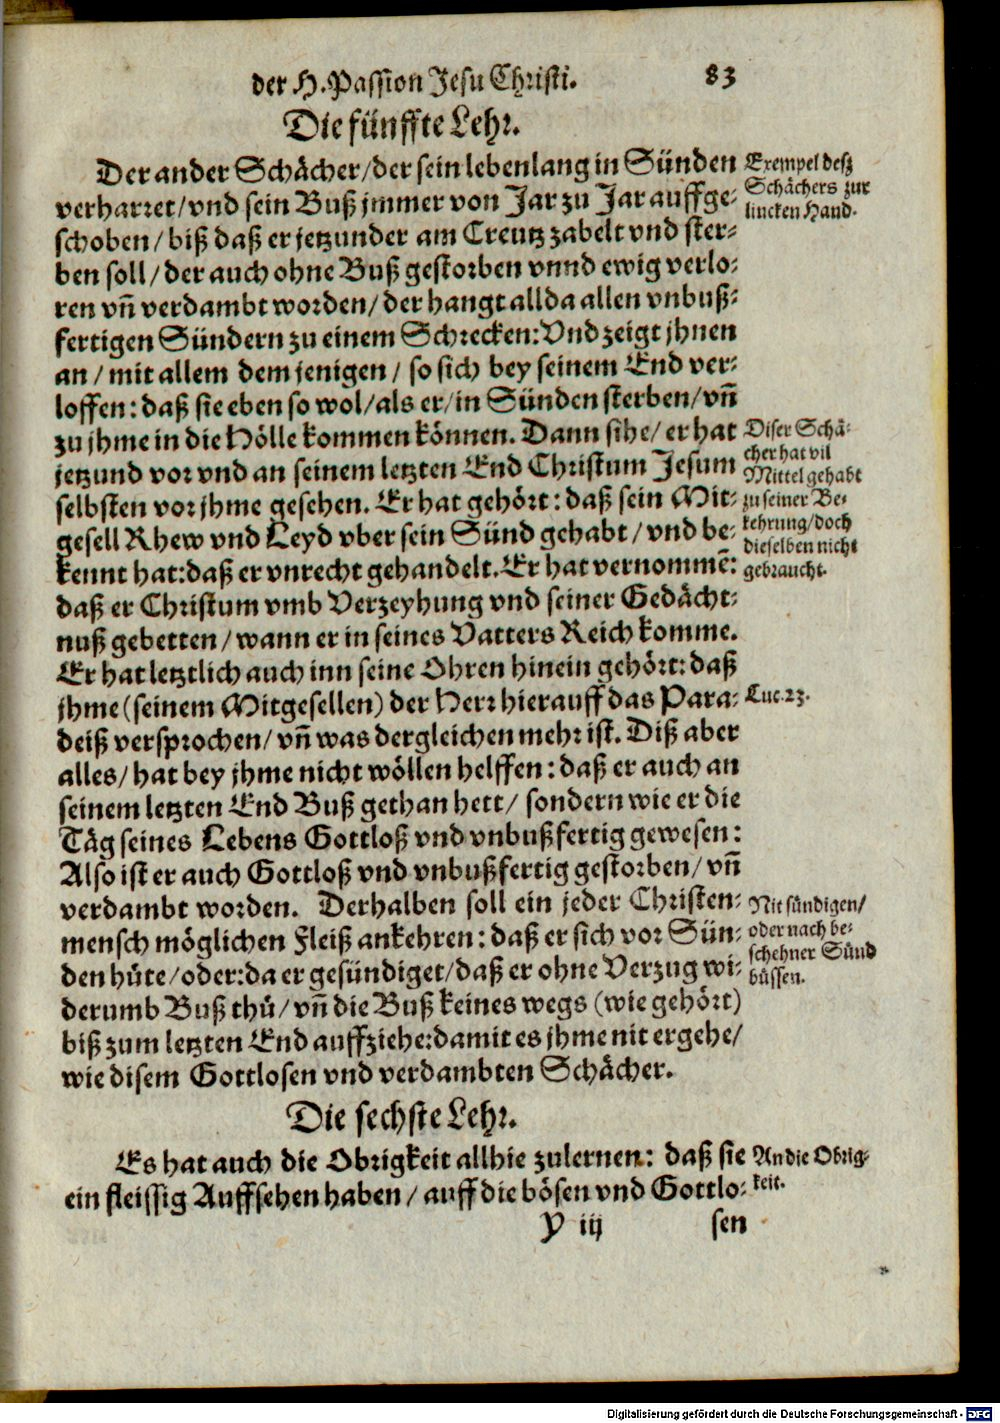 der H. Passion Jesu Christi. 83
Die fünffte Lehr.
Der ander Schächer/der sein lebenlang in Sünden
verharret/vnd sein Buß jmmer von Jar zu Jar auffge-
schoben/biß daß er jetzunder am Creutz zabelt vnd ster-
ben soll/der auch ohne Buß gestorben vnnd ewig verlo-
ren vñ verdambt worden/der hangt allda allen vnbuß-
fertigen Sündern zu einem Schrecken: Vnd zeigt jhnen
an/mit allem dem jenigen/so sich bey seinem End ver-
loffen: daß sie eben so wol/als er/in Sünden sterben/vñ
zu jhme in die Hölle kommen können. Dann sihe/er hat
jetzund vor vnd an seinem letzten End Christum Jesum
selbsten vor jhme gesehen. Er hat gehört: daß sein Mit-
gesell Rhew vnd Leyd vber sein Sünd gehabt/vnd be-
kennt hat: daß er vnrecht gehandelt. Er hat vernommẽ:
daß er Christum vmb Verzeyhung vnd seiner Gedächt-
nuß gebetten/wann er in seines Vatters Reich komme.
Er hat letztlich auch inn seine Ohren hinein gehört: daß
jhme (seinem Mitgesellen) der Herr hierauff das Para-
deiß versprochen/vñ was dergleichen mehr ist. Diß aber
alles/hat bey jhme nicht wöllen helffen: daß er auch an
seinem letzten End Buß gethan hett/sondern wie er die
Täg seines Lebens Gottloß vnd vnbußfertig gewesen:
Also ist er auch Gottloß vnd vnbußfertig gestorben/vñ
verdambt worden. Derhalben soll ein jeder Christen-
mensch möglichen Fleiß ankehren: daß er sich vor Sün-
den hüte/oder: da er gesündiget/daß er ohne Verzug wi-
derumb Buß thů/vñ die Buß keines wegs (wie gehört)
biß zum letzten End auffziehe: damit es jhme nit ergehe/
wie disem Gottlosen vnd verdambten Schächer.
Die sechste Lehr.
Es hat auch die Obrigkeit allhie zulernen: daß sie
ein fleissig Auffsehen haben/auff die bösen vnd Gottlo-
Y iij sen
Exempel deß
Schächers zur
lincken Hand.
Diser Schä-
cher hat vil
Mittel gehabt
zu seiner Be-
kehrung/doch
dieselben nicht
gebraucht.
Luc. 23.
Nit sündigen/
oder nach be-
schehner Sünd
büssen.
An die Obrig-
keit.
Digitalisierung gefördert durch die Deutsche Forschungsgemeinschaft - DFG